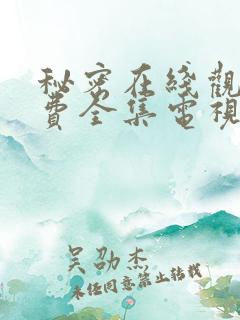 秘密在綫觀
費全集電視
吴劭杰
未经同意禁止转载